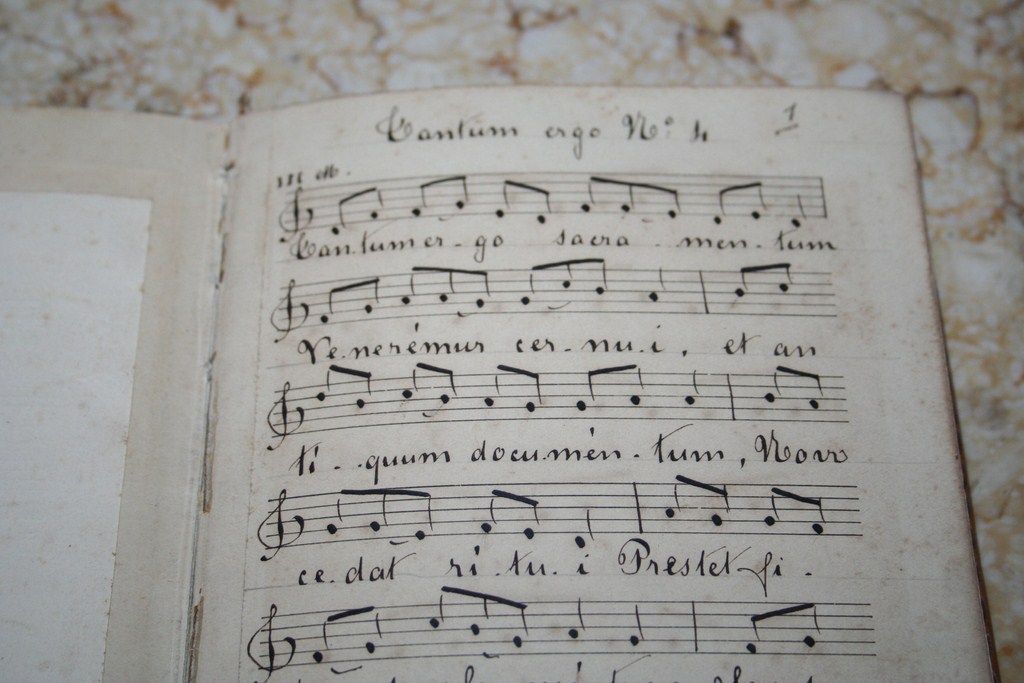 Tantum ergo Nº 4 1
Tan.tum er-go sacra-men-tum
Ve.nerémur cer-nu.i, et an
ti-.quum docu.mén-tum, Novo
ce.dat ri.tu.i Prestet fi-